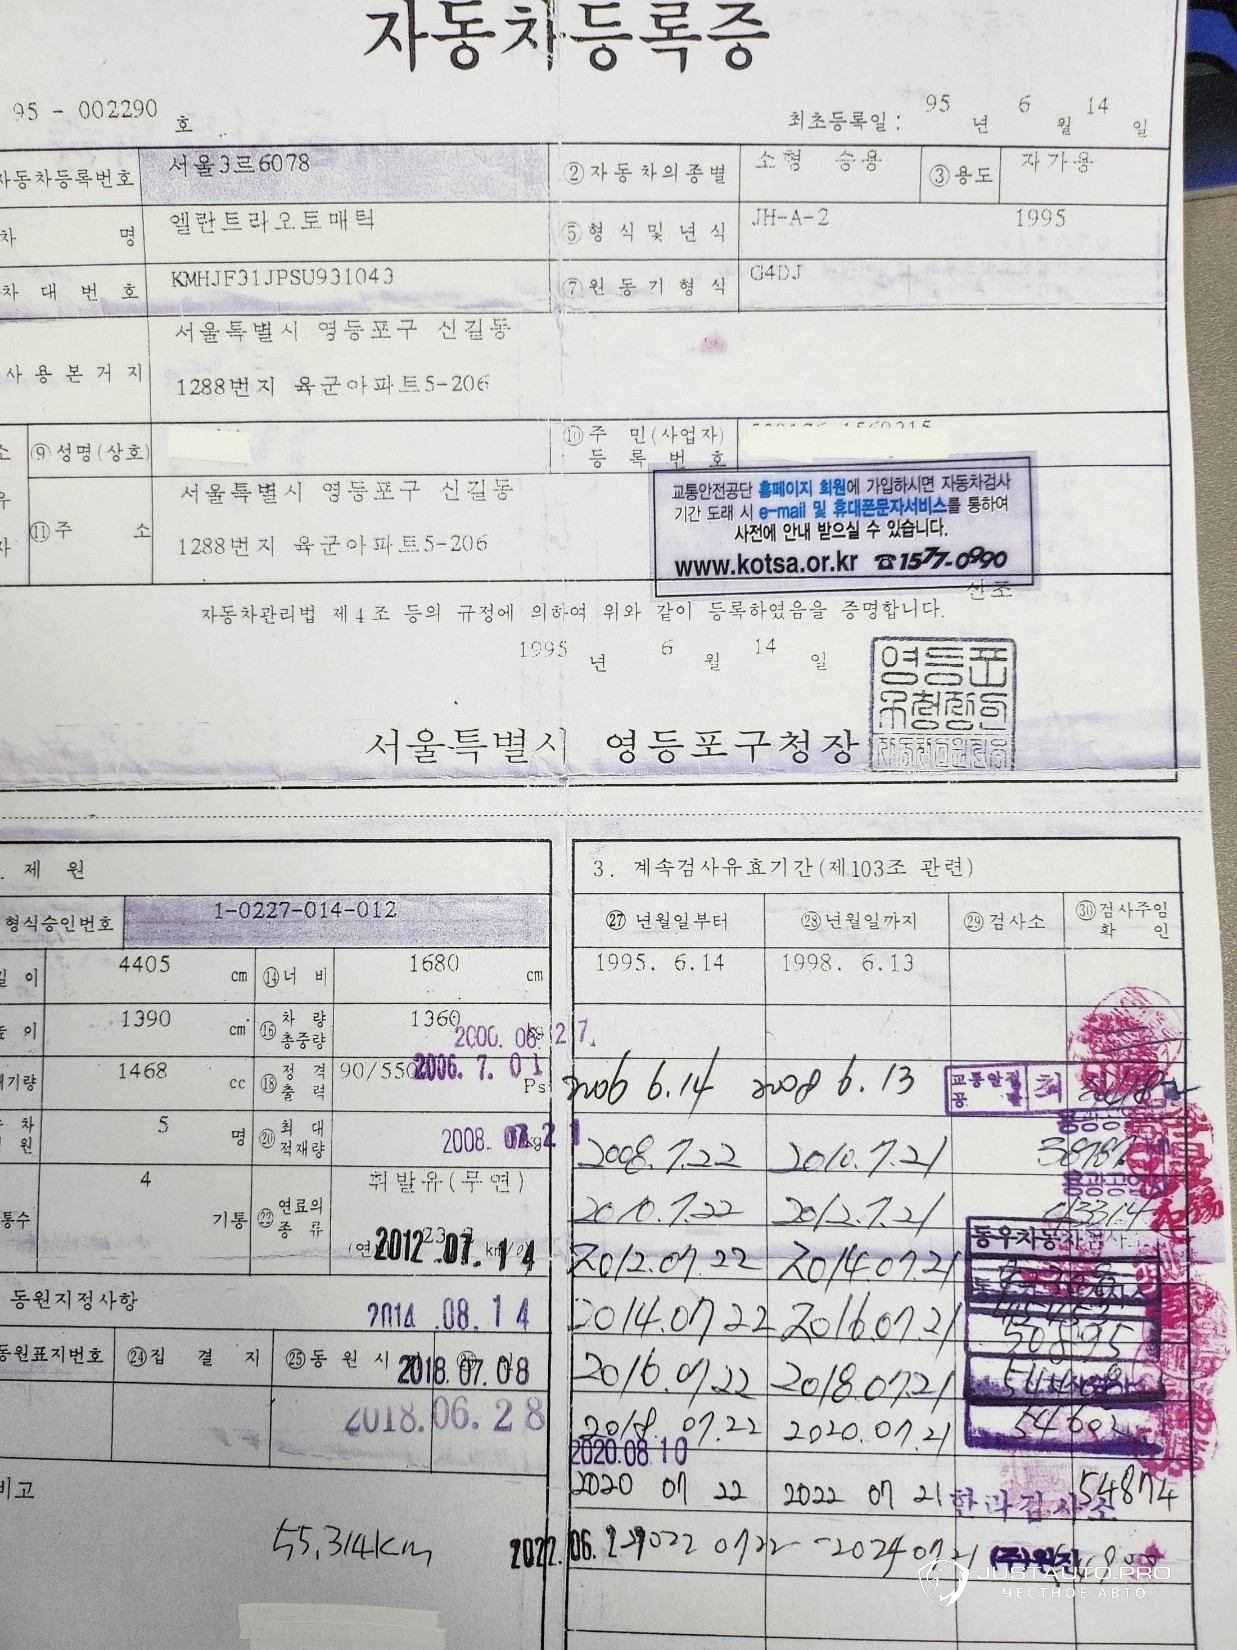 자동차등록증
95 - 002290 호
최초등록일 : 95 년 6 월 14 일
자동차등록번호 서울3르6078 ②자동차의종별 소형 승용 ③용도 자가용
차 명 엘란트라오토매틱 ⑤형식및년식 JH-A-2 1995
차대번호 KMHJF31JPSU931043 ⑦원동기형식 G4DJ
사용본거지 서울특별시 영등포구 신길동
1288번지 육군아파트5-206
⑨성명(상호) ⑩주민(사업자)
등록번호
⑪주 소 서울특별시 영등포구 신길동
1288번지 육군아파트5-206
교통안전공단 홈페이지 회원에 가입하시면 자동차검사
기간 도래 시 e-mail 및 휴대폰문자서비스를 통하여
사전에 안내 받으실 수 있습니다.
www.kotsa.or.kr ☎1577-0990
자동차관리법 제4조 등의 규정에 의하여 위와 같이 등록하였음을 증명합니다.
1995 년 6 월 14 일
서울특별시 영등포구청장
제 원
형식승인번호 1-0227-014-012
길이 4405 cm ⑭너비 1680 cm
높이 1390 cm ⑯차량총중량 1360 kg
2000. 06. 27.
배기량 1468 cc ⑱정격출력 90/550 Ps
2006. 7. 01
5 명 ⑳최대적재량 kg
2008. 07. 21
통수 4 기통 ㉒연료의종류 휘발유(무연)
2012.07.14
동원지정사항
2014.08.14
동원표지번호 ㉔집결지 ㉕동원시
2018.07.08
2018.06.28
비고
55,314km
3. 계속검사유효기간(제103조 관련)
㉗년월일부터 ㉘년월일까지 ㉙검사소 ㉚검사주임확인
1995. 6.14 1998. 6.13
2006 6.14 2008 6.13 교통안전공
2008.7.22 2010.7.21
2010.7.22 2012.7.21
2012.07.22 2014.07.21 동우자동차
2014.07.22 2016.07.21 50895
2016.07.22 2018.07.21
2018.07.22 2020.07.21 54602
2020.08.10
2020 07 22 2022 07 21 한라검사소 54874
2022.06.29 2022 07 22 - 2024 07 21 (주)원진
JUSTAUTO.PRO
ЧЕСТНОЕ АВТО